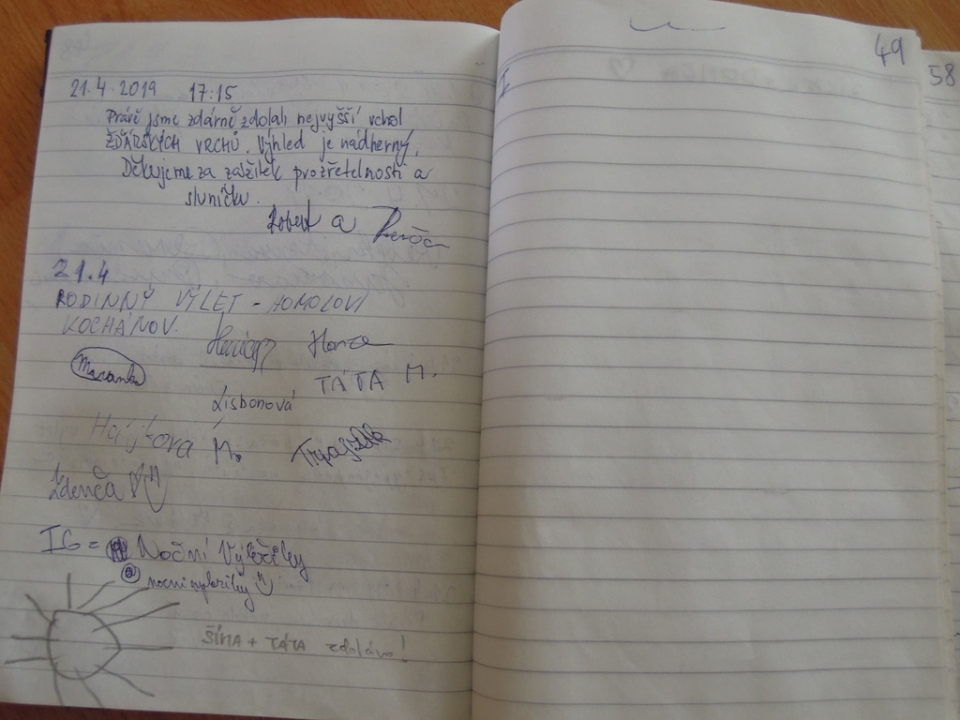 21.4.2019 17:15
Právě jsme zdárně zdolali nejvyšší vrchol
ŽĎÁRSKÝCH VRCHŮ. Výhled je nádherný.
Děkujeme za zážitek prozřetelnosti a
sluníčku.
Robert a
21.4
RODINNÝ VÝLET - HOMOLOVI
KOCHÁNOV.
Honza
TÁTA M.
Lisbonová
M.
Zdenča
IG = Noční Výkřiky
@ nocnivykriky
ŠÍMA + TÁTA zdoláno!
49
58
I